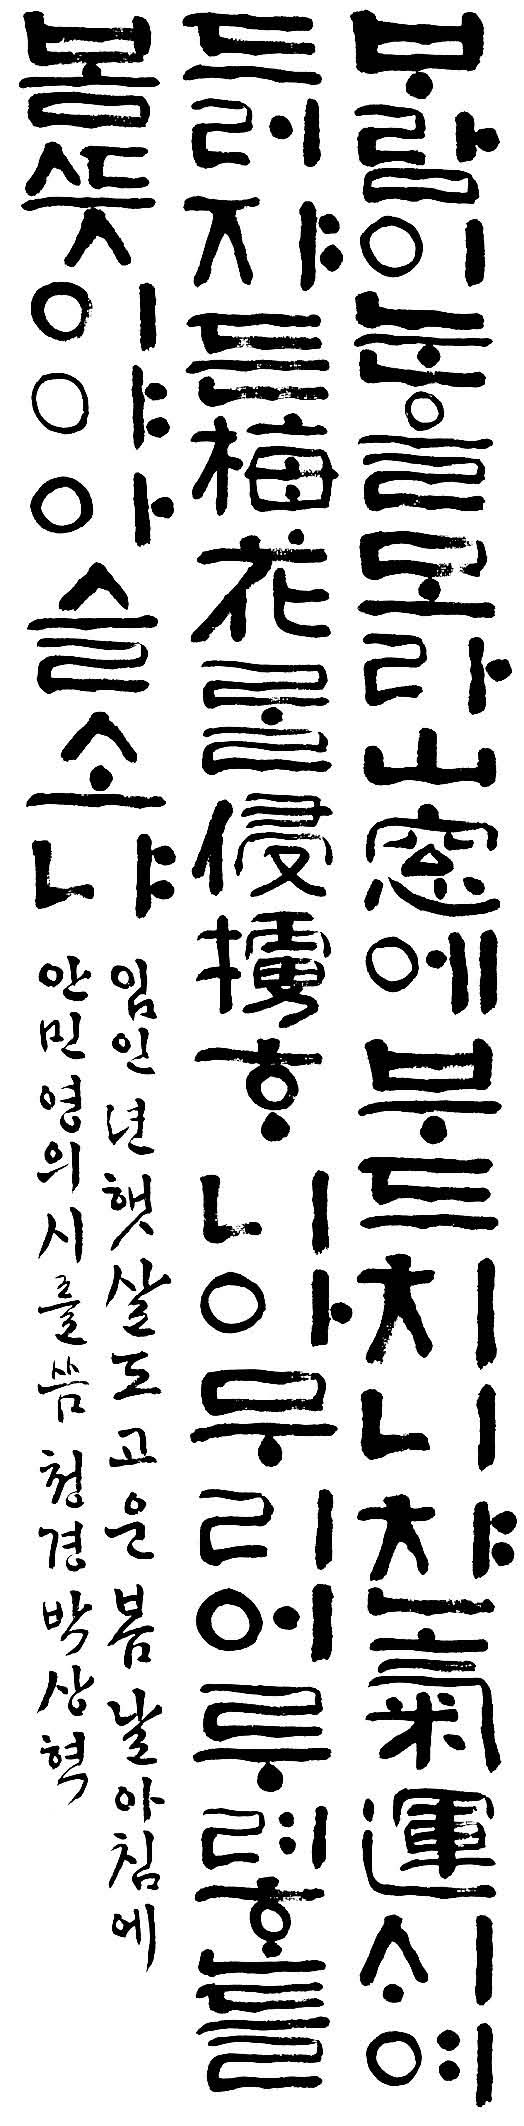 ᄇᆞ람이눈을모라山窓에부드치니챤氣運ᄉᆡ여
드러쟈든梅花ᄅᆞᆯ侵擄ᄒᆞ니아무리어루려ᄒᆞᆫ들
봄ᄯᅳᆺ이야아슬소냐
임인년햇살도고운봄날아침에
안민영의시를씀 청경박상혁